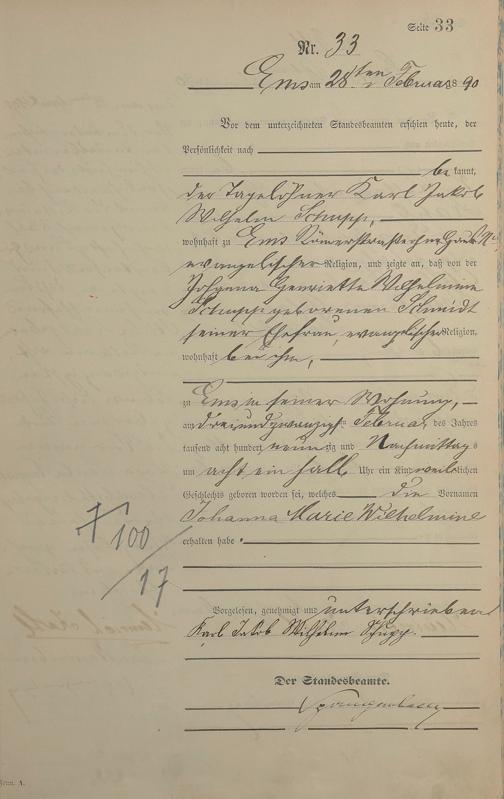 Seite 33
Nr. 33
Ems am 28ten Februar 1890
Vor dem unterzeichneten Standesbeamten erschien heute, der
Persönlichkeit nach
be kannt,
der Tagelöhner Karl Jakob
Wilhelm Schupp,
wohnhaft zu Ems Römerstraße ohne Haus Nr.
evangelischer Religion, und zeigte an, daß von der
Johanna Henriette Wilhelmine
Schupp geborenen Schmidt
seiner Ehefrau, evangelischer Religion,
wohnhaft bei ihm,
zu Ems in seiner Wohnung,
am dreiundzwanzigsten Februar des Jahres
tausend acht hundert neunzig und Nachmittags
um acht ein halb Uhr ein Kind weiblichen
Geschlechts geboren worden sei, welches die Vornamen
Johanna Marie Wilhelmine
erhalten habe.
+ 100/17
Vorgelesen, genehmigt und unterschrieben
Karl Jakob Wilhelm Schupp.
Der Standesbeamte.
Spangenberg